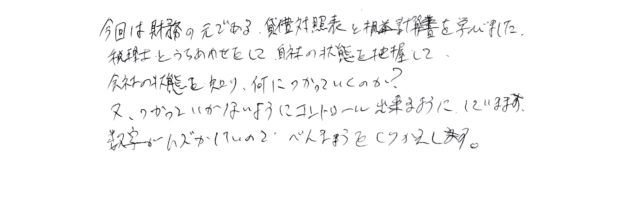 今回は財務の元である、貸借対照表と損益計算書を学びました。
税理士とうちあわせをして 自社の状態を把握して、
会社の状態を知り、何につかっていくのか?
又、つかっていかないようにコントロール出来るように、しています。
数字がムズかしいので べんきょうをくりかえします。